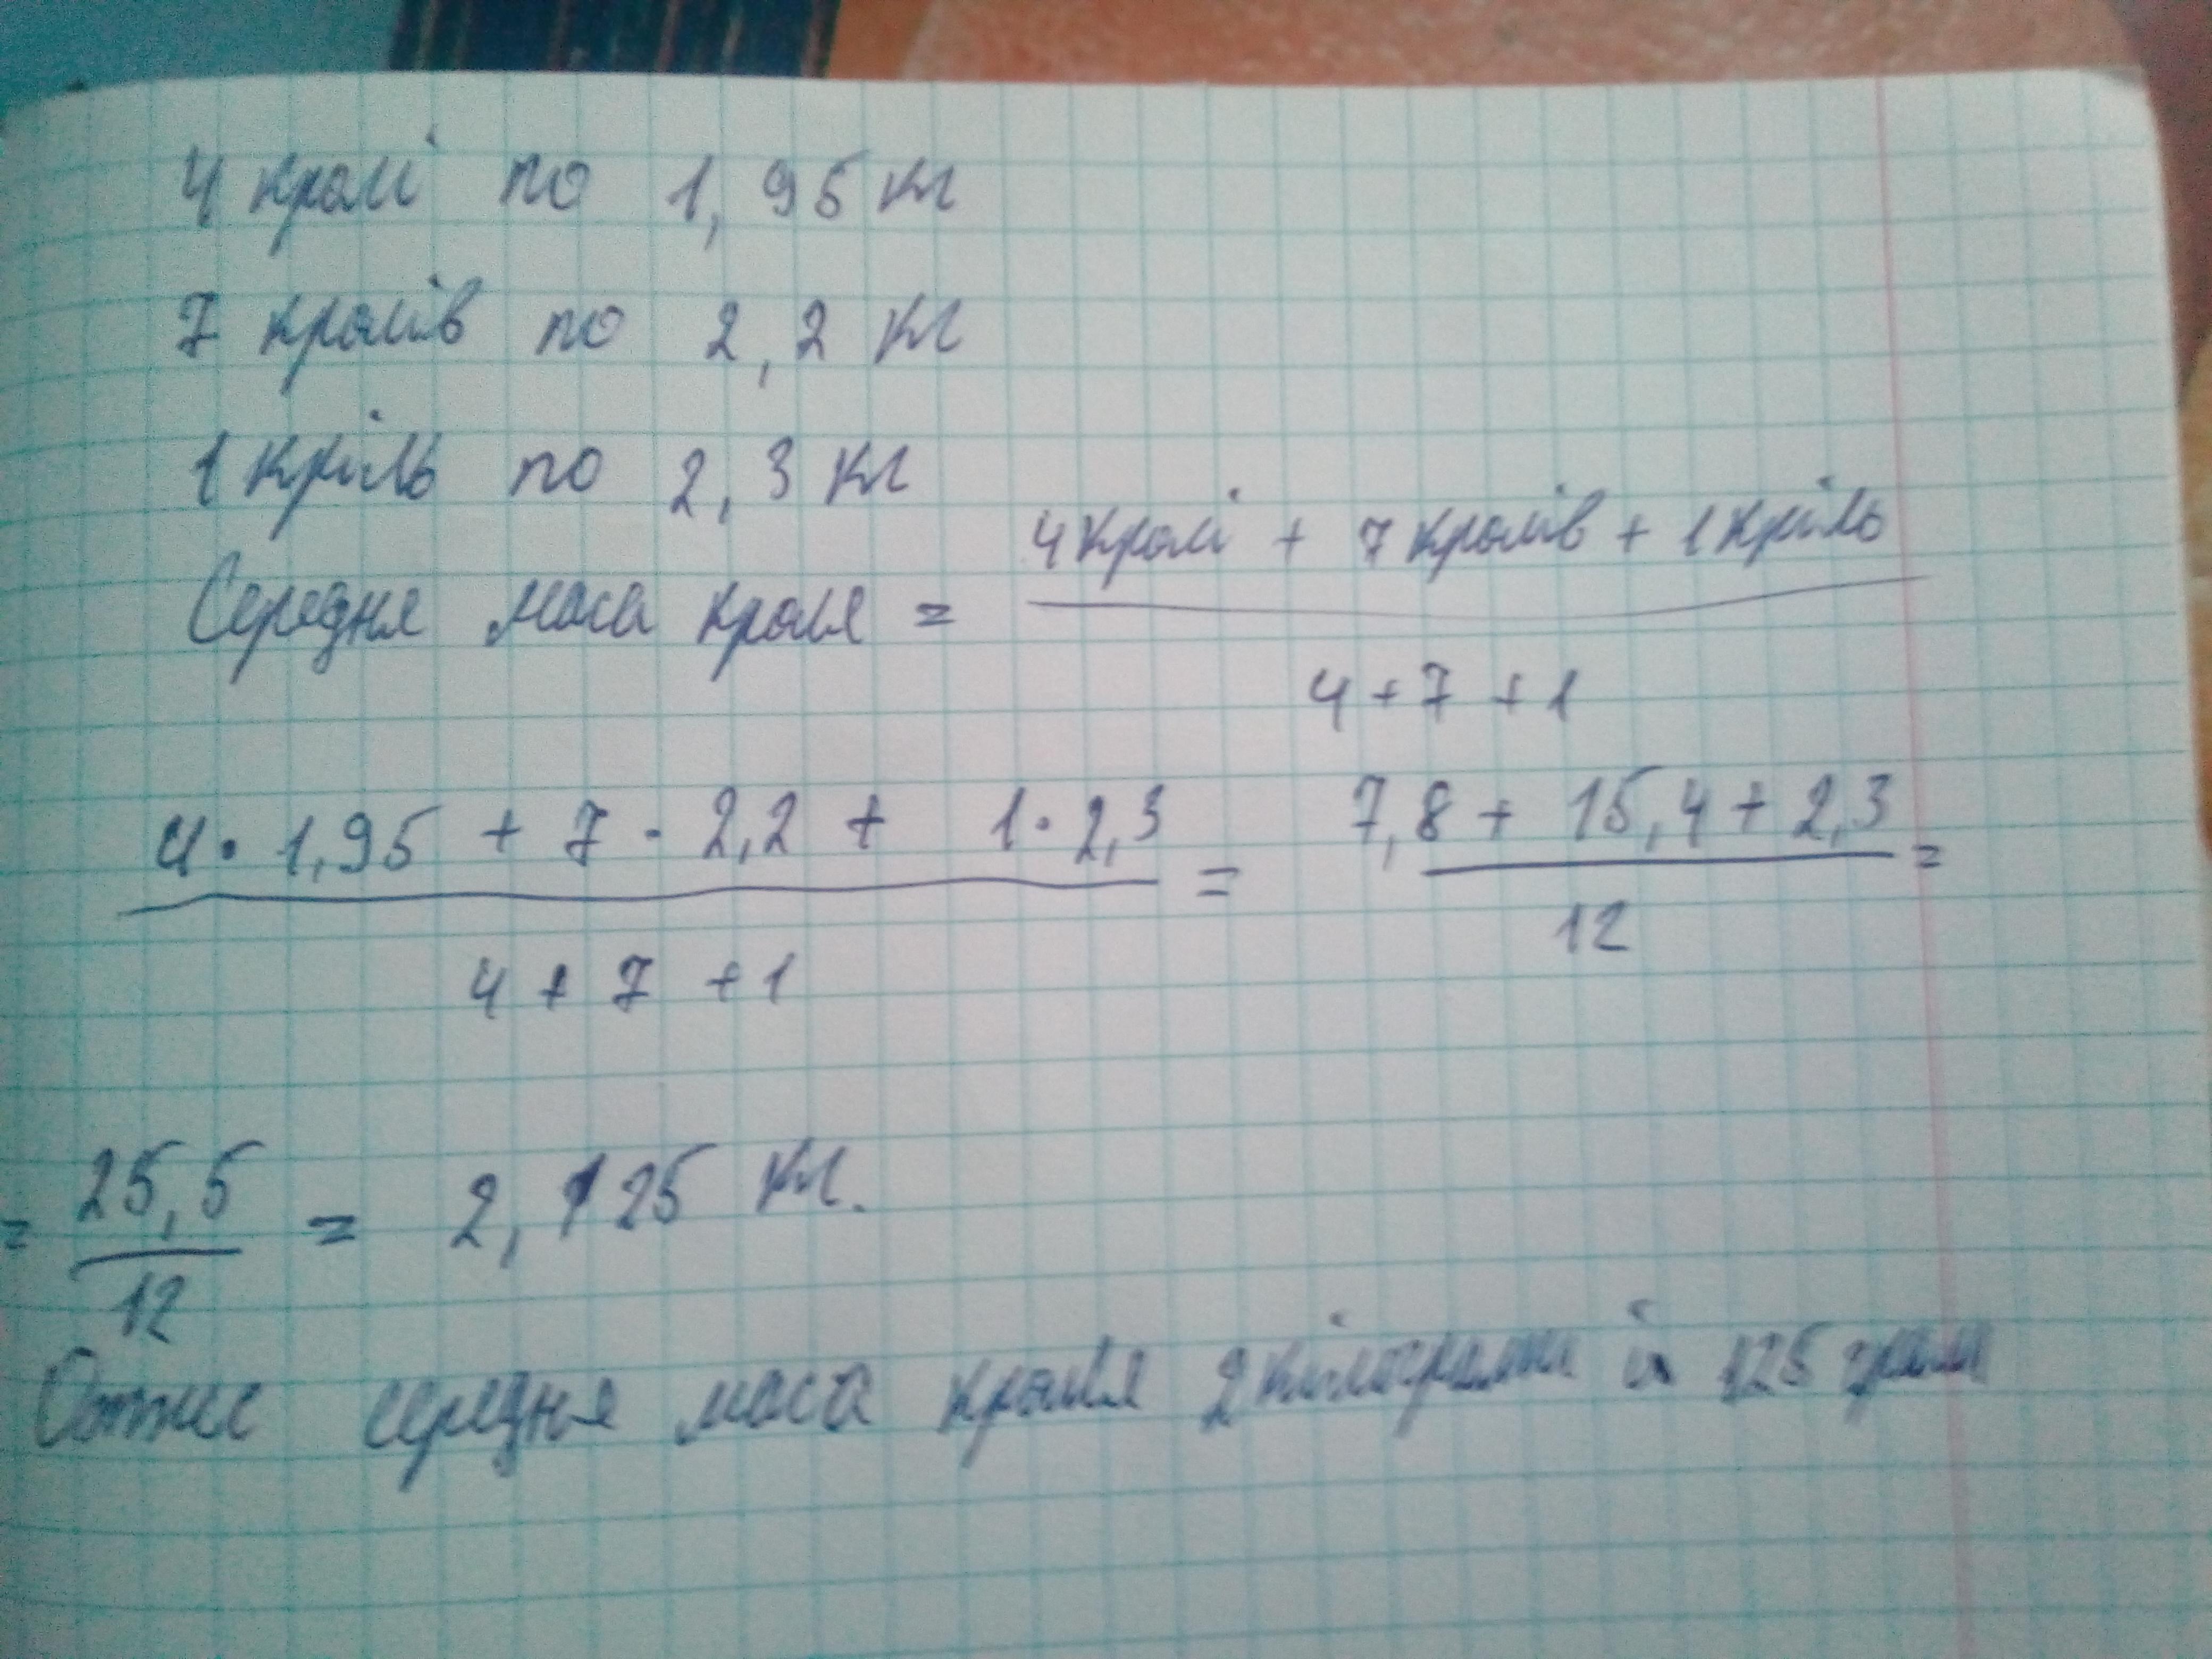 4 кролі по 1,95 кг
7 кролів по 2,2 кг
1 кріль по 2,3 кг
4 кролі + 7 кролів + 1 кріль
Середня маса кроля =
4 + 7 + 1
4 · 1,95 + 7 · 2,2 + 1 · 2,3 = 7,8 + 15,4 + 2,3 =
4 + 7 + 1 12
= 25,5 = 2,125 кг.
12
Отже середня маса кроля 2 кілограми і 125 грам